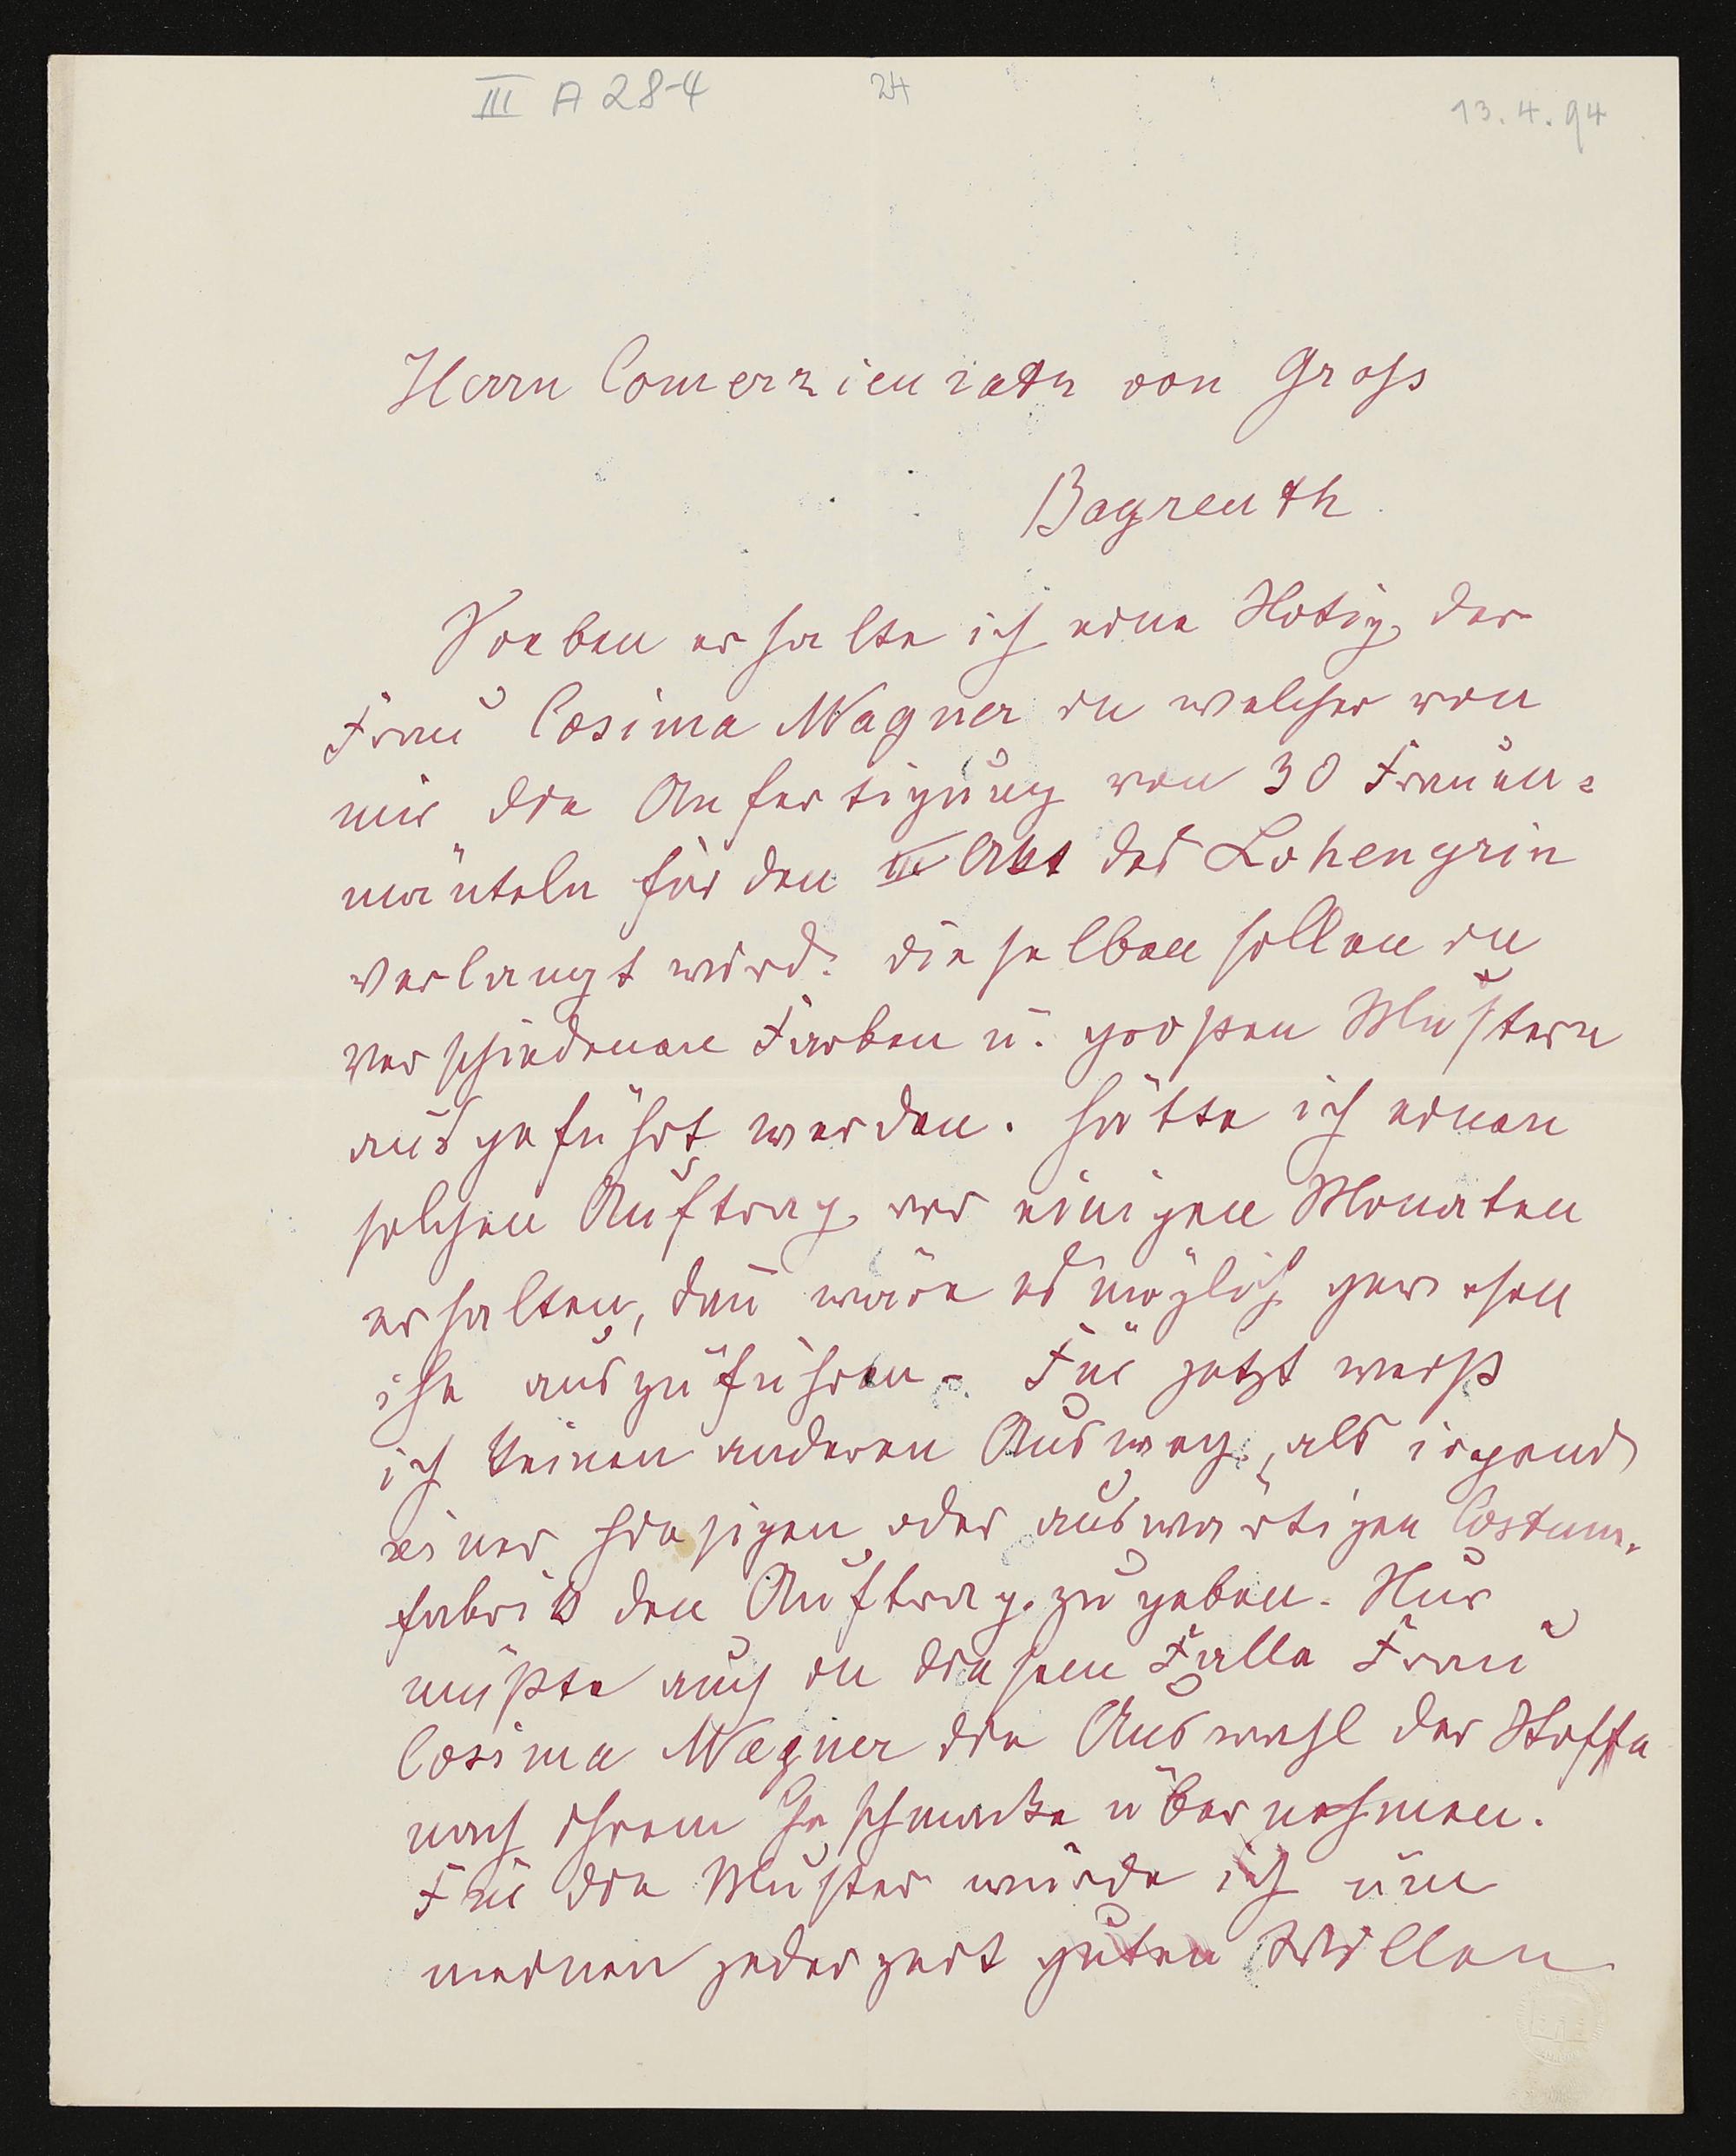 III A 28-4
24
13.4.94
Herrn Comerzienrath von Gross
Bayreuth
Soeben erhalte ich eine Notiz der
Frau Cosima Wagner in welcher von
mir die Anfertigung von 30 Frauen=
mänteln für den III Akt des Lohengrin
verlangt wird. Dieselben sollen in
verschiedenen Farben u. großen Mustern
ausgeführt werden. Hätte ich einen
solchen Auftrag vor einigen Monaten
erhalten, dan̄ wäre es möglich gewesen
ihn auszuführen. Für jetzt weiß
ich keinen anderen Ausweg, als irgend
einer hiesigen oder auswärtigen Costum-
fabrik den Auftrag zu geben. Nur
müßte auch in diesem Falle Frau
Cosima Wagner die Auswahl der Stoffe
nach ihrem Geschmacke übernehmen.
Für die Muster würde ich um
meinen jederzeit guten Willen